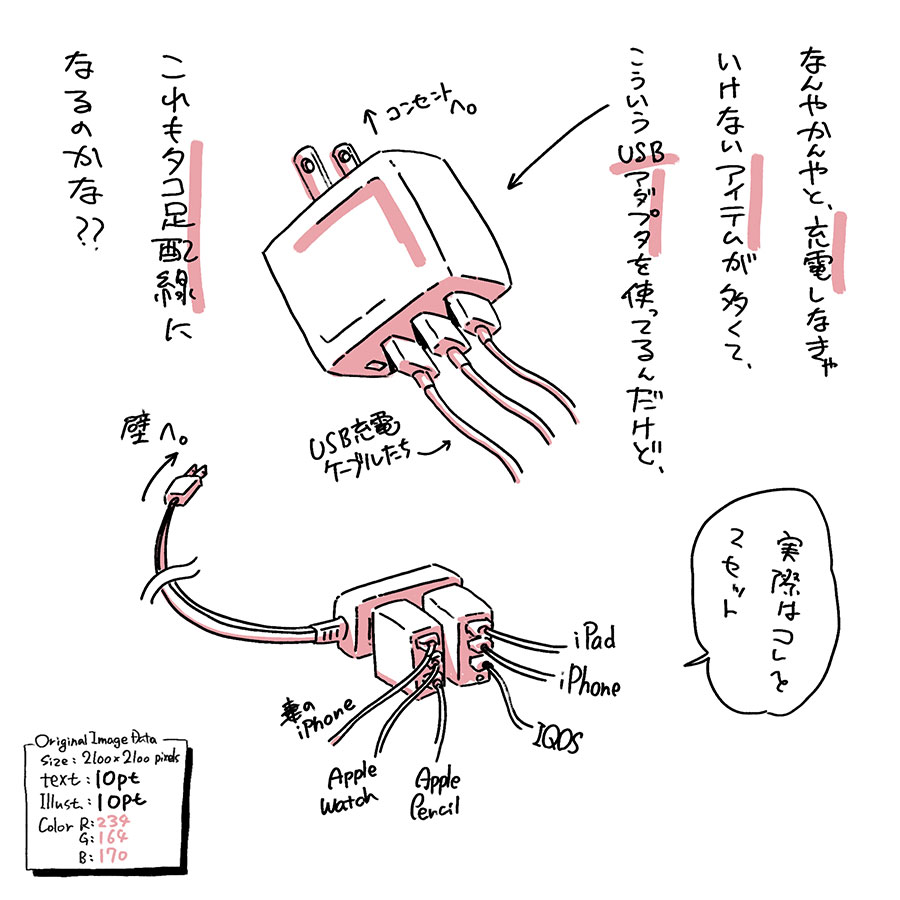 なんやかんやと、充電しなきゃ
いけないアイテムが多くて、
こういうUSBアダプタを使ってるんだけど、
コンセントへ。
これもタコ足配線に
なるのかな??
USB充電
ケーブルたち
壁へ。
実際はコレを
2セット
iPad
iPhone
IQOS
妻の
iPhone
Apple
Watch
Apple
Pencil
Original Image Data
Size: 2100×2100 pixels
text: 10pt
Illust.: 10pt
Color R: 234
G: 164
B: 170